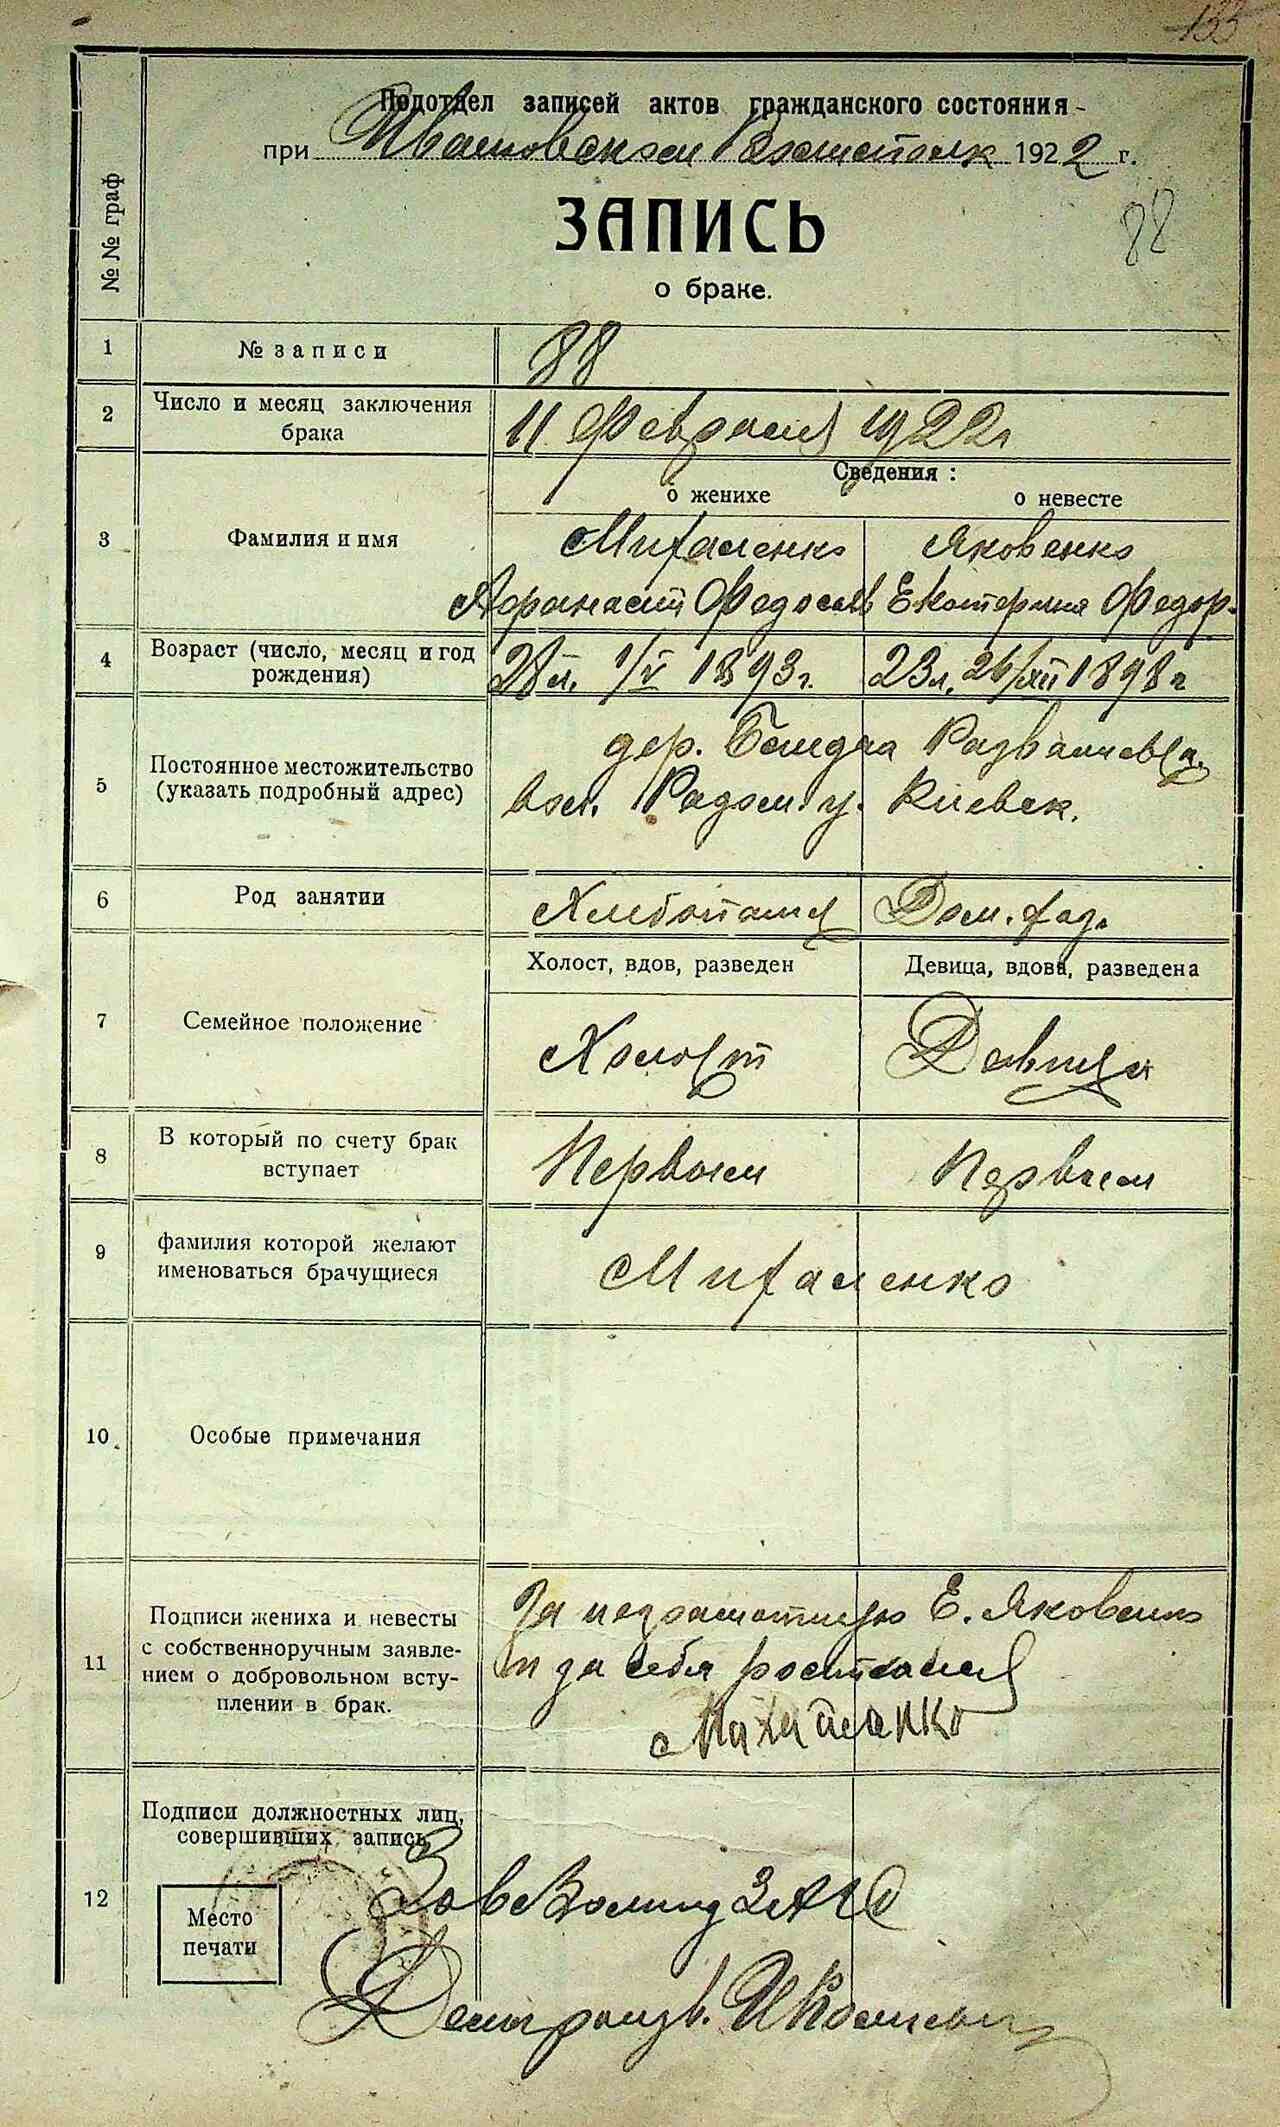 133
Подотдел записей актов гражданского состояния
при Ивановском Волисполк 1922 г.
№№ граф
ЗАПИСЬ
88
о браке.
1 № записи 88
2 Число и месяц заключения брака 11 Февраля 1922 г
Сведения:
о женихе о невесте
3 Фамилия и имя
Михаленко Яковенко
Афанасий Федосеев Екатерина Федор.
4 Возраст (число, месяц и год рождения) 28 л. 1/V 1893 г. 23 л. 26/XII 1898 г
5 Постоянное местожительство (указать подробный адрес)
дер.
вол. Радом. у. Киевск.
6 Род занятии Хлебопашец Дом. хоз.
Холост, вдов, разведен Девица, вдова, разведена
7 Семейное положение Холост Девица
8 В который по счету брак вступает Первом Первом
9 фамилия которой желают именоваться брачущиеся Михаленко
10 Особые примечания
11 Подписи жениха и невесты
с собственноручным заявле-
нием о добровольном всту-
плении в брак.
За неграмотную Е. Яковенко
и за себя росписался
Михаленко
12 Подписи должностных лиц,
совершивших запись
Зав Волпид ЗАГС
Место
печати
Делопроизв.